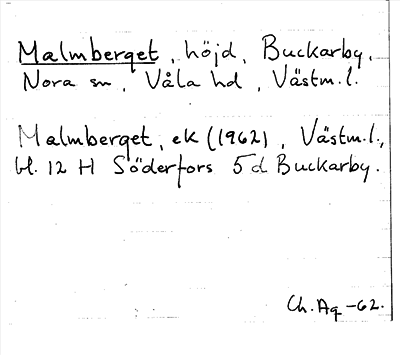 Malmberget, höjd, Buckarby,
Nora sn, Våla hd, Västm.l.
Malmberget, ek (1962), Västm.l.,
bl. 12 H Söderfors 5 d Buckarby.
Ch. Aq -62.